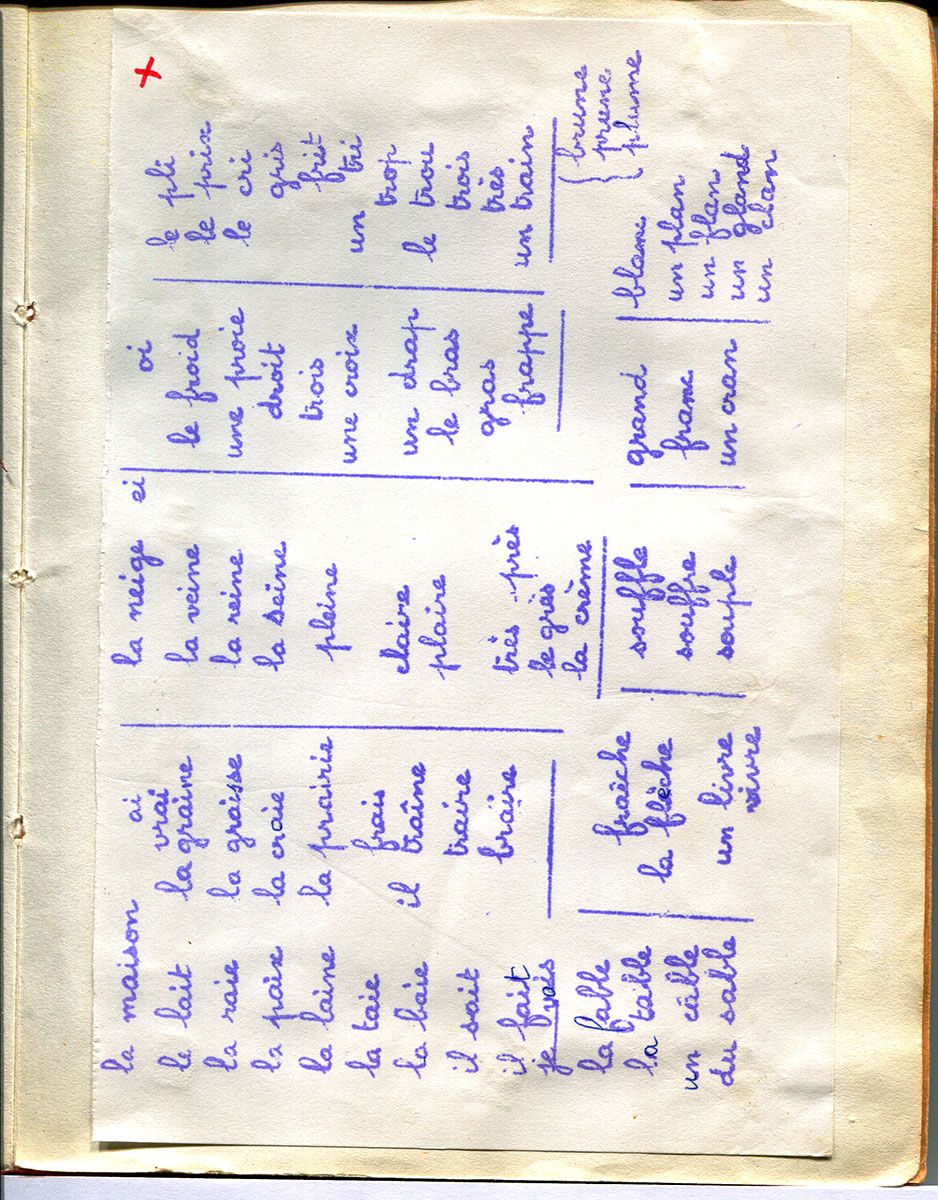 la maison
le lait
la raie
la paix
la laine
la taie
la baie
il sait
il fait
je vais
ai
vrai
la graine
la graisse
la craie
la prairie
frais
il traîne
traire
braire
la neige
ei
la veine
la reine
la seine
pleine
claire
plaire
très près
le grès
la crème
oi
le froid
une proie
droit
trois
une croix
un drap
le bras
gras
frappe
le pli
le prix
le cri
gris
frit
un tri
trop
le trou
trois
très
un train
la fable
la table
un câble
du sable
fraîche
la flèche
un livre
vivre
souffle
souffre
souple
grand
franc
un cran
blanc
un plan
un flan
un gland
un clan
brune
prune
plume